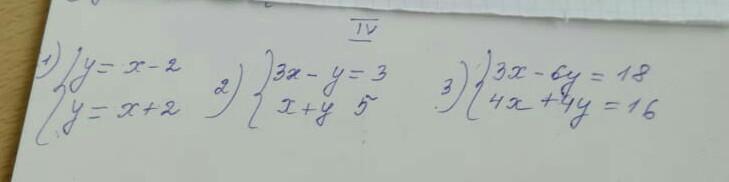 IV
1) { y = x - 2
y = x + 2
2) { 3x - y = 3
x + y 5
3) { 3x - 6y = 18
4x + 4y = 16